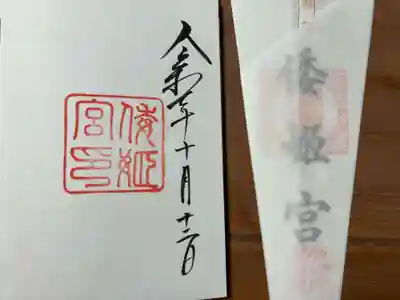 令和年十月十二日
倭姫
宮印
倭姫宮